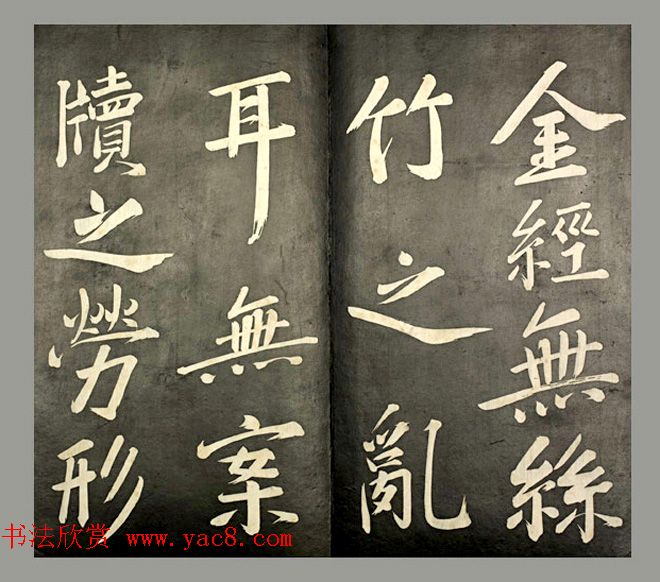 金經無絲
竹之亂
耳無案
牘之勞形
书法欣赏 www.yac8.com